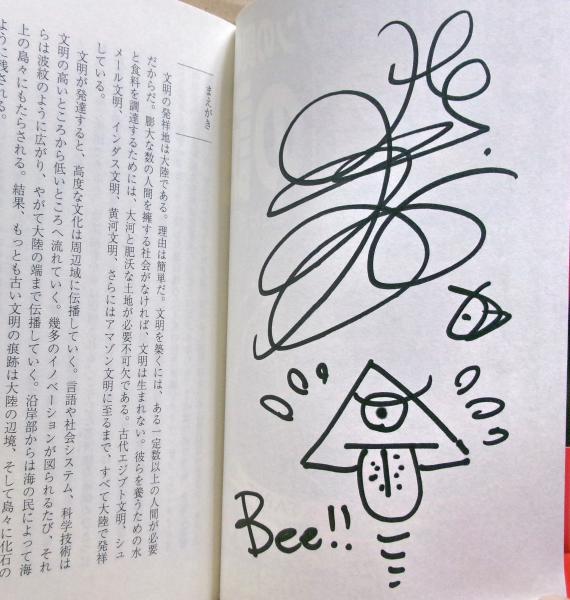 まえがき
文明の発祥地は大陸である。理由は簡単だ。文明を築くには、ある一定数以上の人間が必要
だからだ。膨大な数の人間を擁する社会がなければ、文明は生まれない。彼らを養うための水
と食料を調達するためには、大河と肥沃な土地が必要不可欠である。古代エジプト文明、シュ
メール文明、インダス文明、黄河文明、さらにはアマゾン文明に至るまで、すべて大陸で発祥
している。
文明が発達すると、高度な文化は周辺域に伝播していく。言語や社会システム、科学技術は
文明の高いところから低いところへ流れていく。幾多のイノベーションが図られるたび、それ
らは波紋のように広がり、やがて大陸の端まで伝播していく。沿岸部からは海の民によって海
上の島々にもたらされる。結果、もっとも古い文明の痕跡は大陸の辺境、そして島々に化石の
ように残される。
Bee!!